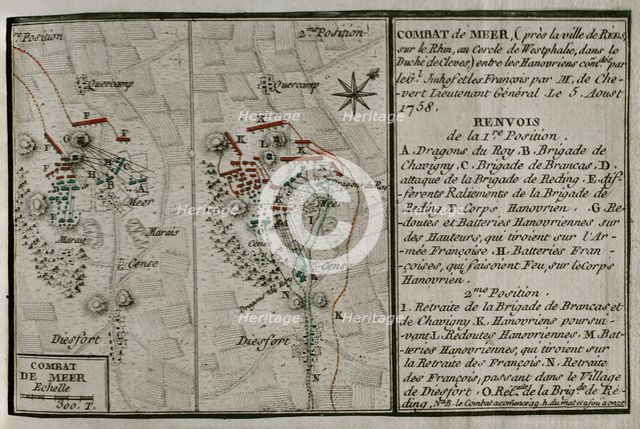 re Position
2.me Position
Quercamp
Quercamp
F
F
F
F
G
H
H
E
D
B
C
A
Meer
Marais
Marais
Cense
Diesfort
COMBAT
DE MEER
Echelle
300. T.
K
K
K
K
L
L
Dragons du Roy
Meer
I
M
Cense
Cense
N
K
Diesfort
N
COMBAT de MEER, (près la ville de REES,
sur le Rhin, au Cercle de Westphalie, dans le
Duché de Cleves) entre les Hanovriens com.dés par
le G.l Imhof et les François par M. de Che-
vert Lieutenant Général Le 5. Aoust
1758.
RENVOIS
de la 1.re Position.
A. Dragons du Roy, B. Brigade de
Chavigny, C. Brigade de Brancas, D.
attaque de la Brigade de Reding, E. dif-
férents Raliements de la Brigade de
Reding, F. Corps Hanovrien, G. Re-
doutes et Batteries Hanovriennes sur
des Hauteurs, qui tiroient sur l'Ar-
mée Françoise, H. Batteries Fran-
çoises, qui faisoient Feu, sur le Corps
Hanovrien.
2.me Position.
I. Retraite de la Brigade de Brancas et
de Chavigny, K. Hanovriens poursui-
vant L. Redoutes Hanovriennes, M. Bat-
teries Hanovriennes, qui tiroient sur
la Retraite des François, N. Retraite
des François, passant dans le Village
de Diesfort, O. Ret.raite de la Brig.de de Ré-
ding, N.a B. le Combat a comencé a 9. h. du mat. et a fini a onze
Heritage
heritage-images.com